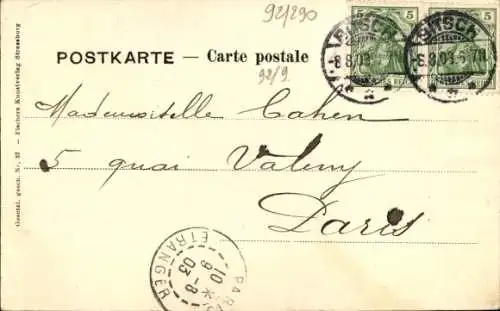 92/290
POSTKARTE — Carte postale
92/9.
BITSCH
8.8.03
5
5
BITSCH
8.8.03.5-7N
Mademoiselle Cahen
5 quai Valmy
Paris
PARIS
ETRANGER
10
9 -8
03
Gesetzl. gesch. Nr. 37 - Fischers Kunstverlag Strassburg